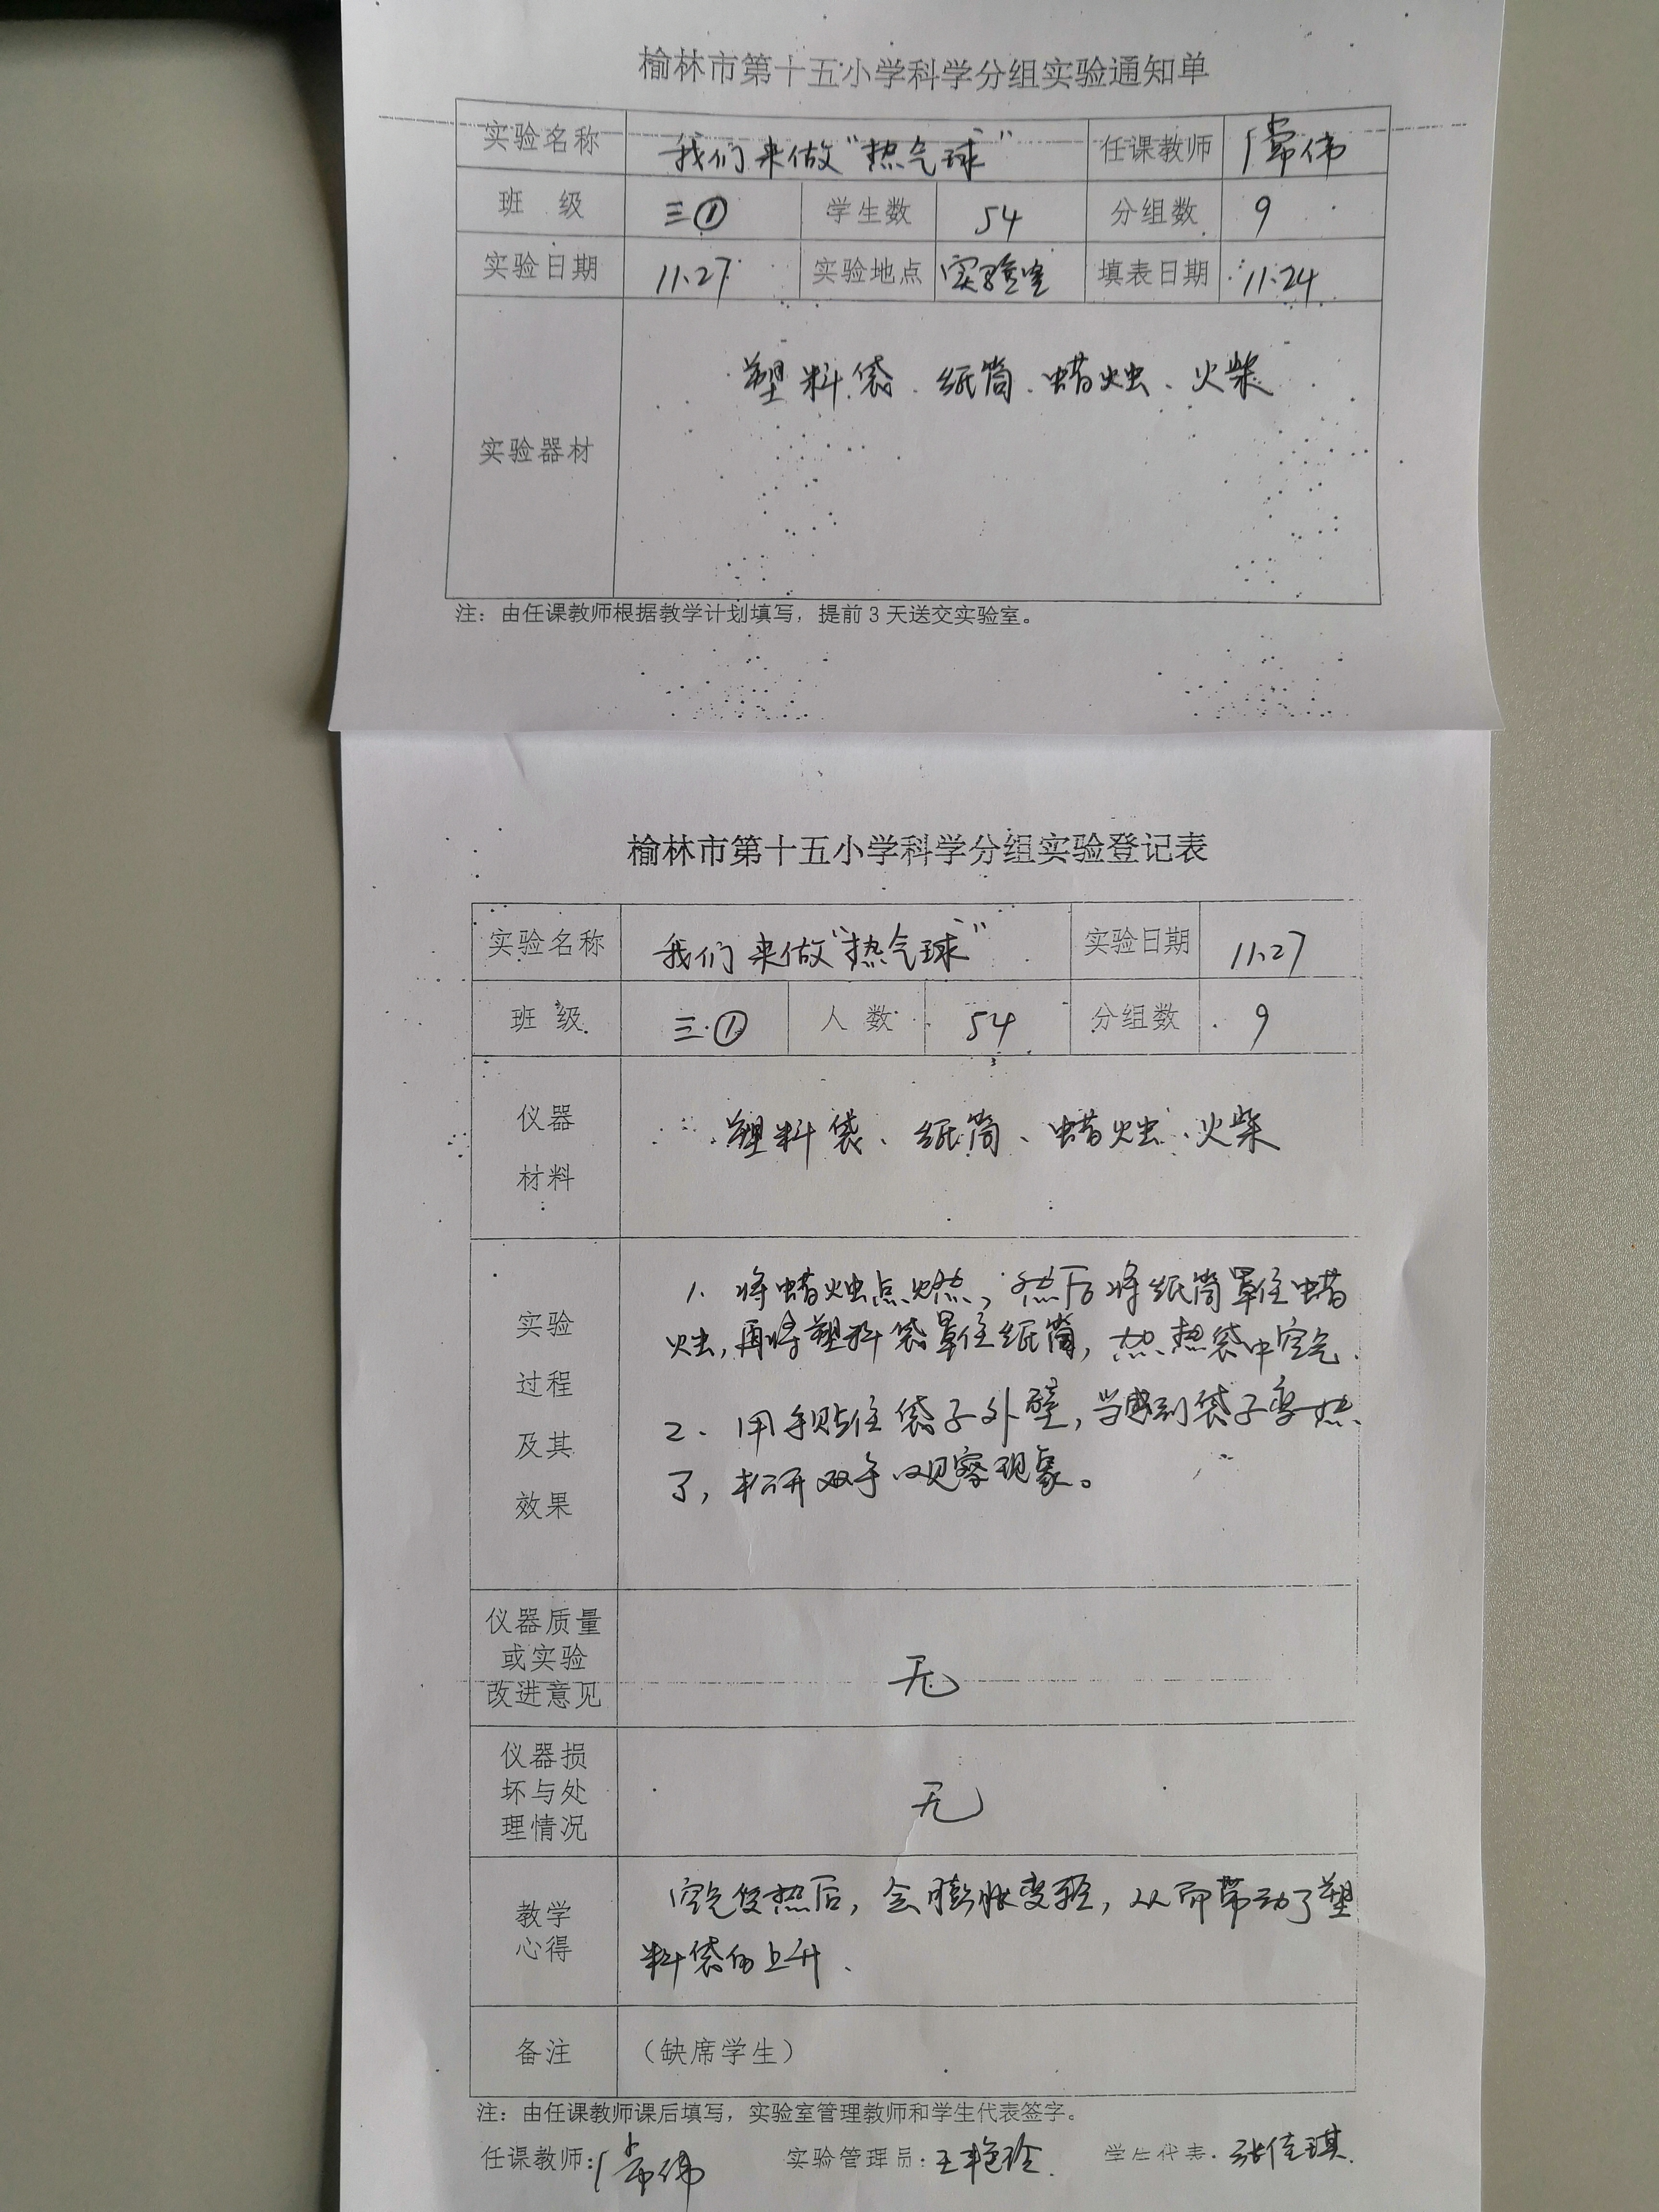 榆林市第十五小学科学分组实验通知单
实验名称 我们来做“热气球” 任课教师 常伟
班 级 三① 学生数 54 分组数 9
实验日期 11.27 实验地点 实验室 填表日期 11.24
实验器材 塑料袋、纸筒、蜡烛、火柴
注：由任课教师根据教学计划填写，提前3天送交实验室。
榆林市第十五小学科学分组实验登记表
实验名称 我们来做“热气球” 实验日期 11.27
班 级 三.① 人 数 54 分组数 9
仪器
材料
塑料袋、纸筒、蜡烛、火柴
实验
过程
及其
效果
1. 将蜡烛点燃，然后将纸筒罩住蜡
烛，再将塑料袋罩住纸筒，加热袋中空气.
2. 用手贴住袋子外壁，当感到袋子变热
了，松开双手观察现象。
仪器质量
或实验
改进意见
无
仪器损
坏与处
理情况
无
教学
心得
空气受热后，会膨胀变轻，从而带动了塑
料袋的上升.
备注 （缺席学生）
注：由任课教师课后填写，实验室管理教师和学生代表签字。
任课教师：常伟 实验管理员：王艳玲 学生代表：张佳琪